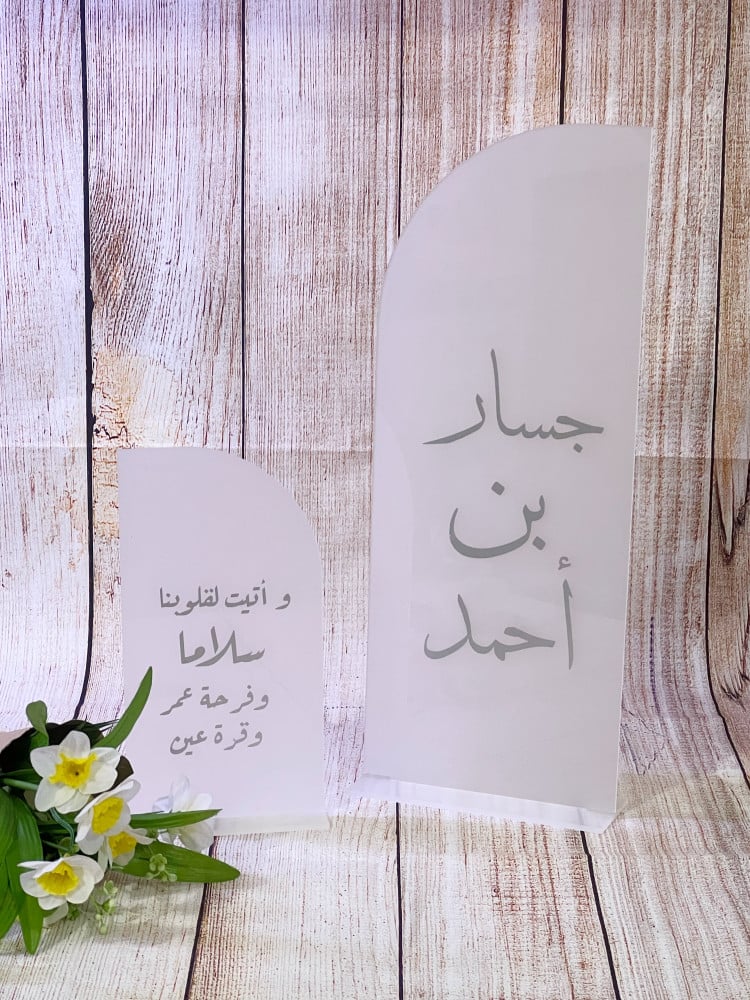 جسار
بن
أحمد
و أتيت لقلوبنا
سلاما
وفرحة عمر
وقرة عين